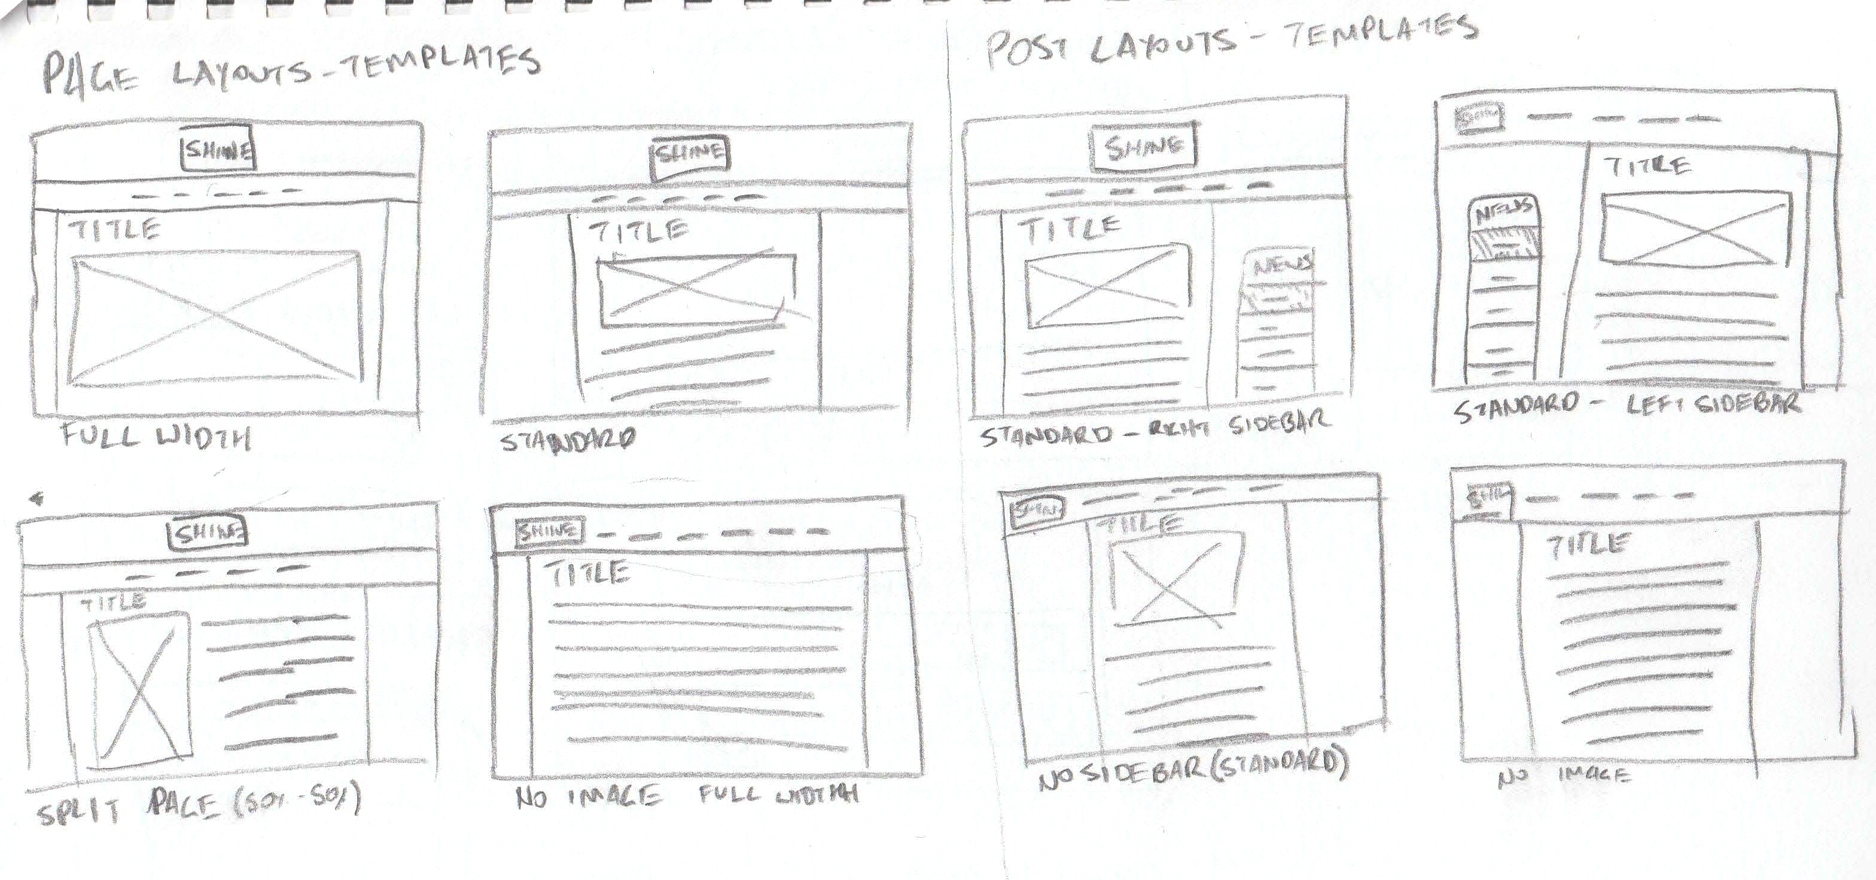 PAGE LAYOUTS - TEMPLATES
SHINE
TITLE
FULL WIDTH
SHINE
TITLE
STANDARD
SHINE
TITLE
SPLIT PAGE (50% - 50%)
SHINE
TITLE
NO IMAGE FULL WIDTH
POST LAYOUTS - TEMPLATES
SHINE
TITLE
NEWS
STANDARD - RIGHT SIDEBAR
SHINE
TITLE
NEWS
STANDARD - LEFT SIDEBAR
SHINE
TITLE
NO SIDEBAR (STANDARD)
SHINE
TITLE
NO IMAGE